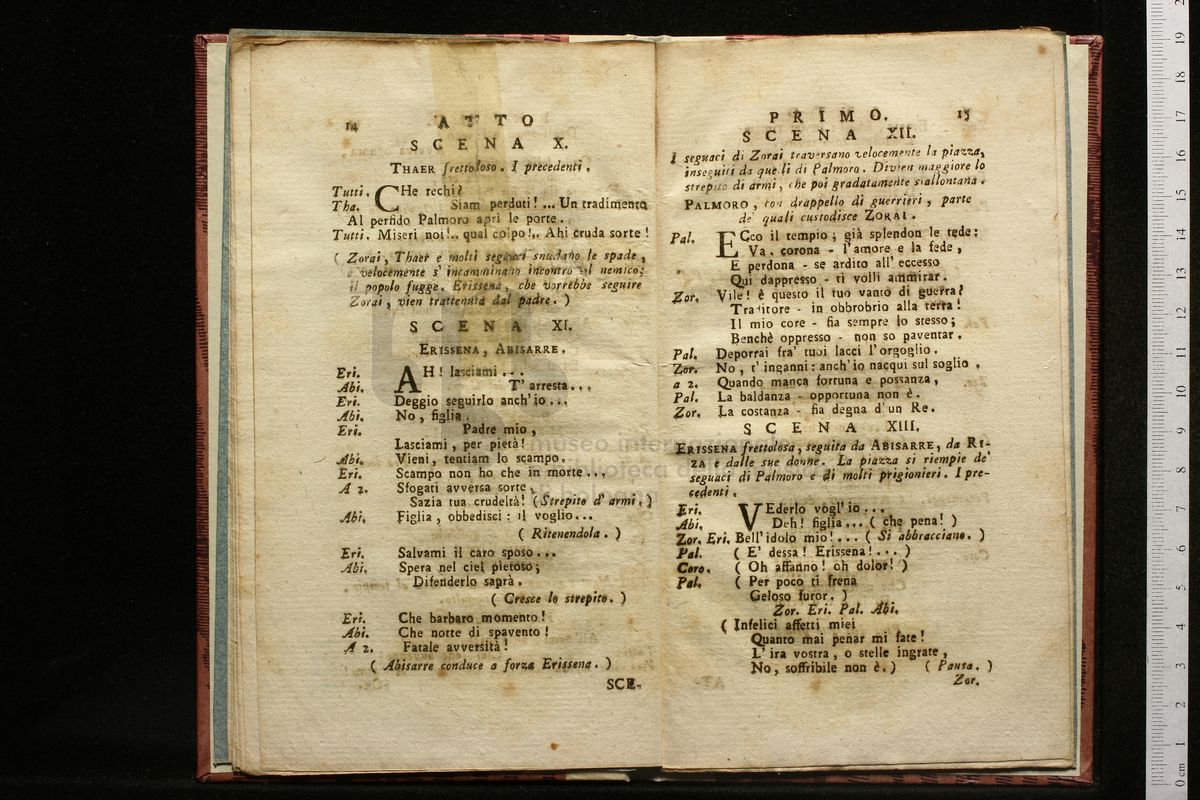 14
ATTO
SCENA X.
THAER frettoloso. I precedenti.
Tutti. CHe rechi?
Tha. Siam perduti! ... Un tradimento
Al perfido Palmoro aprì le porte.
Tutti. Miseri noi!.. qual colpo!.. Ahi cruda sorte!
( Zorai, Thaer e molti seguaci snudano le spade,
e velocemente s' incamminano incontro al nemico;
il popolo fugge. Erissena, che vorrebbe seguire
Zorai, vien trattenuta dal padre. )
SCENA XI.
ERISSENA, ABISARRE.
Eri. AH! lasciami...
Abi. T' arresta...
Eri. Deggio seguirlo anch'io...
Abi. No, figlia.
Eri. Padre mio,
Lasciami, per pietà!
Abi. Vieni, tentiam lo scampo.
Eri. Scampo non ho che in morte...
A 2. Sfogati avversa sorte,
Sazia tua crudeltà! (Strepito d' armi.)
Abi. Figlia, obbedisci: il voglio...
( Ritenendola. )
Eri. Salvami il caro sposo...
Abi. Spera nel ciel pietoso;
Difenderlo saprà.
( Cresce lo strepito. )
Eri. Che barbaro momento!
Abi. Che notte di spavento!
A 2. Fatale avversità!
( Abisarre conduce a forza Erissena. )
SCE-
PRIMO.
15
SCENA XII.
I seguaci di Zorai traversano velocemente la piazza,
inseguiti da quelli di Palmoro. Divien maggiore lo
strepito di armi, che poi gradatamente s'allontana.
PALMORO, con drappello di guerrieri, parte
de' quali custodisce ZORAI.
Pal. ECco il tempio; già splendon le tede:
Va. corona - l'amore e la fede,
E perdona - se ardito all'eccesso
Qui dappresso - ti volli ammirar.
Zor. Vile! è questo il tuo vanto di guerra?
Traditore - in obbrobrio alla terra!
Il mio core - fia sempre lo stesso;
Benchè oppresso - non so paventar.
Pal. Deporrai fra' tuoi lacci l'orgoglio.
Zor. No, t'inganni: anch'io nacqui sul soglio.
a 2. Quando manca fortuna e possanza,
Pal. La baldanza - opportuna non è.
Zor. La costanza - fia degna d'un Re.
SCENA XIII.
ERISSENA frettolosa, seguita da ABISARRE, da RI-
ZA e dalle sue donne. La piazza si riempie de'
seguaci di Palmoro e di molti prigionieri. I pre-
cedenti.
Eri. VEderlo vogl'io...
Abi. Deh! figlia... ( che pena! )
Zor. Eri. Bell'idolo mio!... ( Si abbracciano. )
Pal. ( E' dessa! Erissena!... )
Coro. ( Oh affanno! oh dolor! )
Pal. ( Per poco ti frena
Geloso furor. )
Zor. Eri. Pal. Abi.
( Infelici affetti miei
Quanto mai penar mi fate!
L'ira vostra, o stelle ingrate,
No, soffribile non è.) ( Pausa. )
Zor.
museo internazionale
biblioteca della
0 cm 1 2 3 4 5 6 7 8 9 10 11 12 13 14 15 16 17 18 19 2